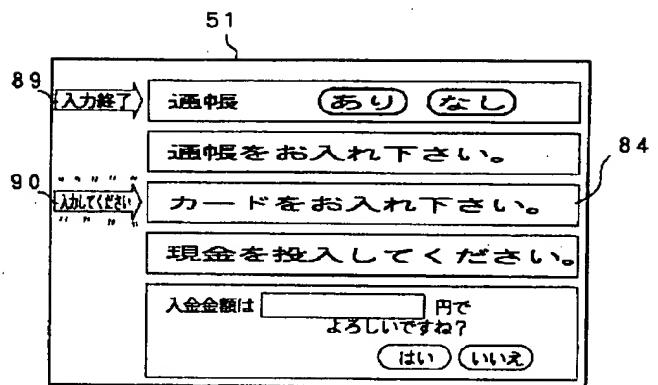 51
89
入力終了 通帳 あり なし
通帳をお入れ下さい。
84
90
入力してください カードをお入れ下さい。
現金を投入してください。
入金金額は 円で
よろしいですね?
はい いいえ